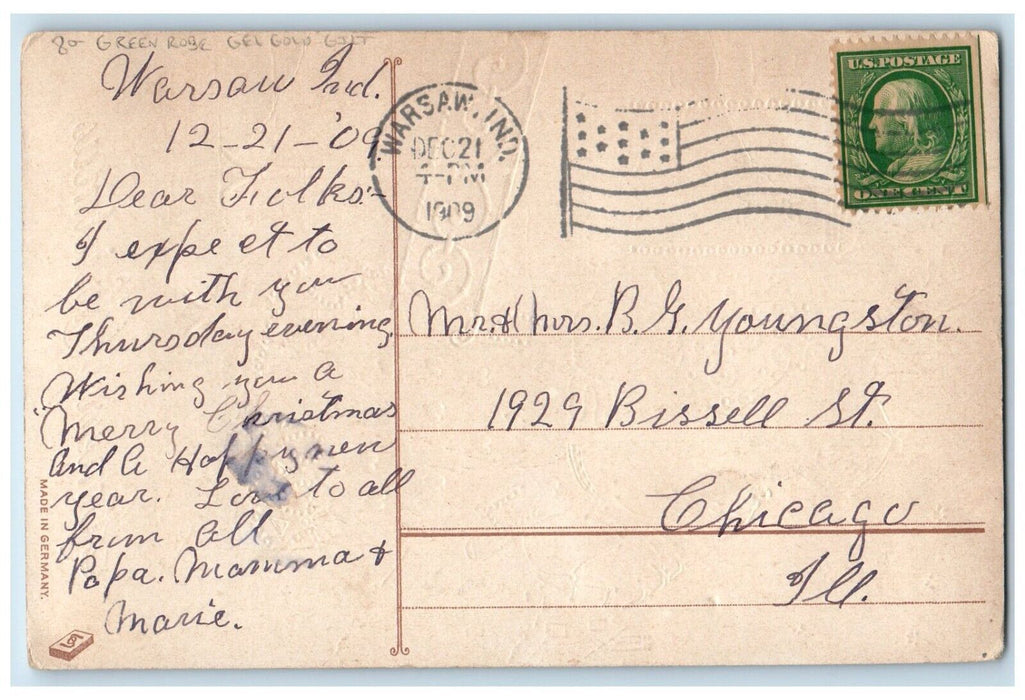 80 GREEN ROBE GEL GOLD GILT
Warsaw Ind.
12-21-'09
Dear Folks:-
I expect to
be with you
Thursday evening.
Wishing you a
"Merry Christmas
And a Happy new
year. Love to all
from all
Papa. Mamma &
Marie.
MADE IN GERMANY.
WARSAW, IND.
DEC 21
4-PM
1909
U.S. POSTAGE
ONE CENT
Mr. & Mrs. B. G. Youngston.
1929 Bissell St.
Chicago
Ill.